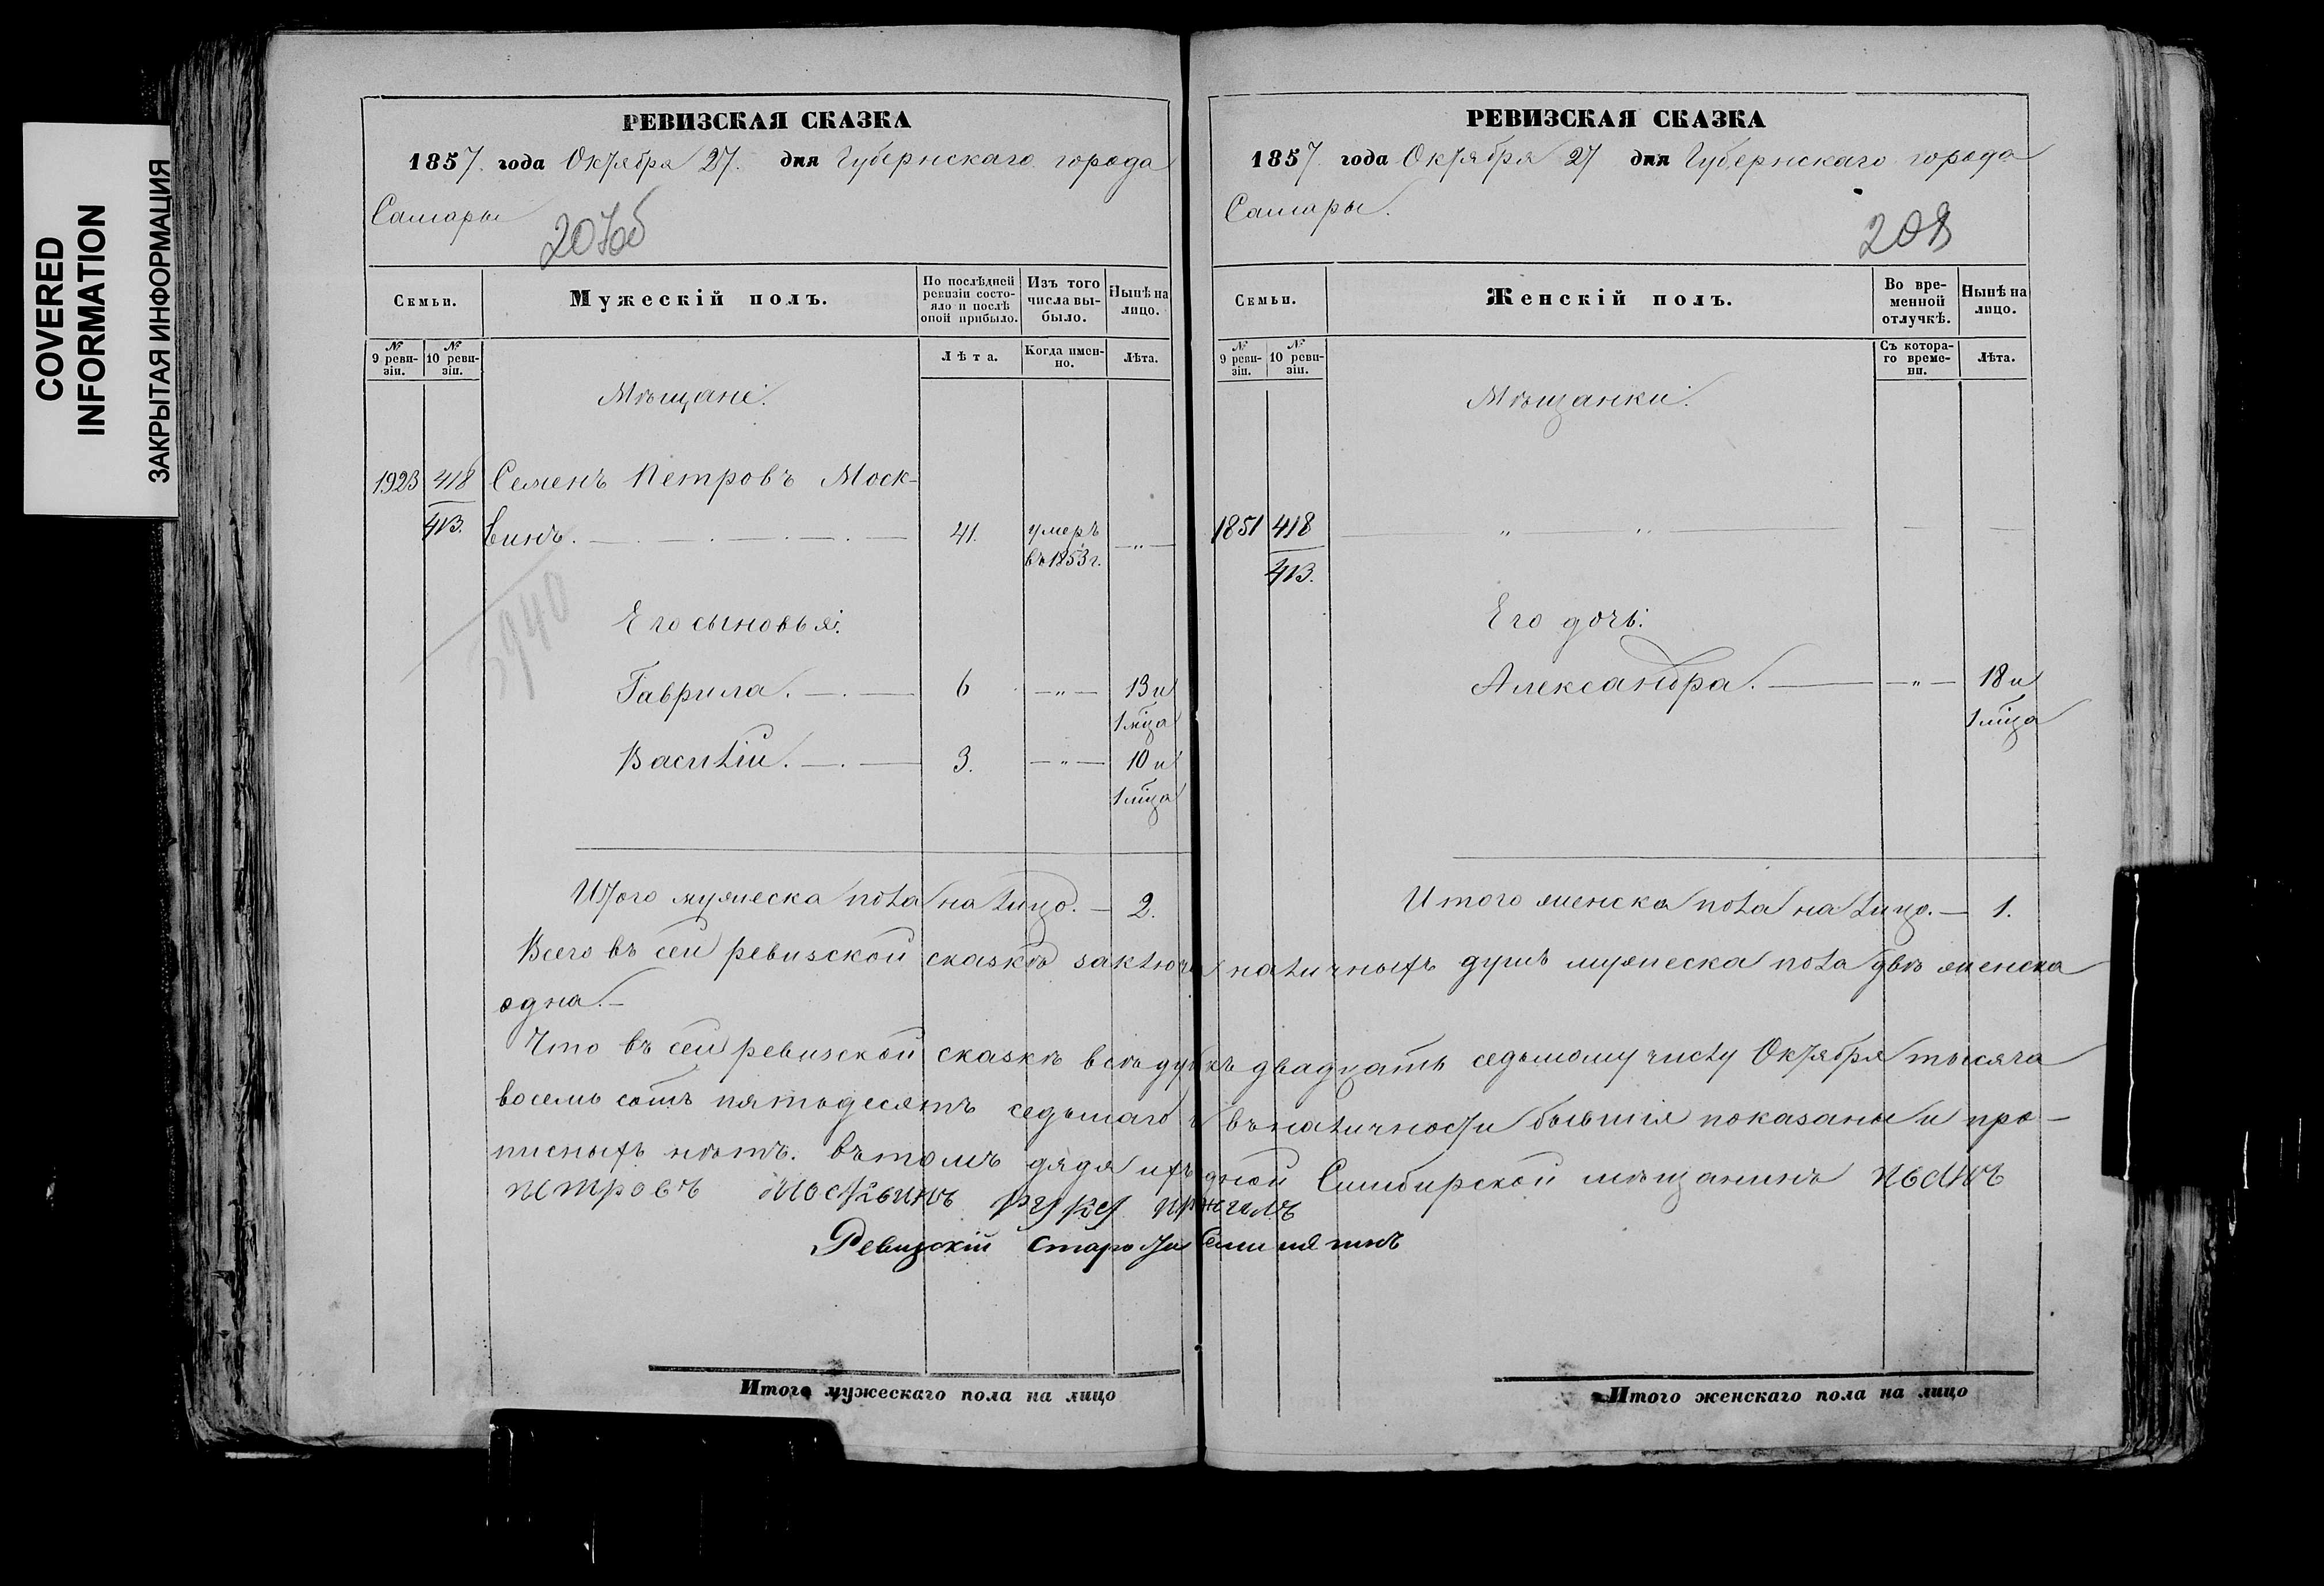 COVERED
INFORMATION
ЗАКРЫТАЯ ИНФОРМАЦИЯ
РЕВИЗСКАЯ СКАЗКА
1857. года Октября 27. дня Губернскаго города
Самары
207об
Семьи.
Мужескій полъ.
По послѣдней
ревизіи состо-
яло и послѣ
оной прибыло.
Изъ того
числа вы-
было.
Нынѣ на
лицо.
№
9 реви-
зіи.
№
10 реви-
зіи.
Лѣта.
Когда имен-
но.
Лѣта.
Мѣщане.
1923 418 Семенъ Петровъ Моск-
413. винъ. 41. умеръ
въ 1853 г. — „ —
3940
Его сыновья:
Гаврила. 6 — „ — 13 и
1 мѣца
Василій. 3. — „ — 10 и
1 мѣца
Итого мужеска пола на лицо. — 2.
РЕВИЗСКАЯ СКАЗКА
1857. года Октября 27 дня Губернскаго города
Самары.
208
Семьи.
Женскій полъ.
Во вре-
менной
отлучкѣ.
Нынѣ на
лицо.
№
9 реви-
зіи.
№
10 реви-
зіи.
Съ котора-
го време-
ни.
Лѣта.
Мѣщанки.
1851 418 „ „
413.
Его дочь:
Александра. — „ — 18 и
1 мѣца
Итого женска пола на лицо. — 1.
Всего въ сей ревизской сказкѣ наличныхъ душъ мужеска пола двѣ женска
одна. —
Что въ сей ревизской сказкѣ всѣ къ двадцать седьмому числу Октября тысяча
восемь сотъ пятьдесятъ седьмаго въ наличности бывшія показаны и про-
писныхъ нѣтъ. въ томъ дядя ихъ Симбирской мѣщанинъ
петровъ Москвинъ руку
Ревизскій Староста
Итого мужескаго пола на лицо
Итого женскаго пола на лицо